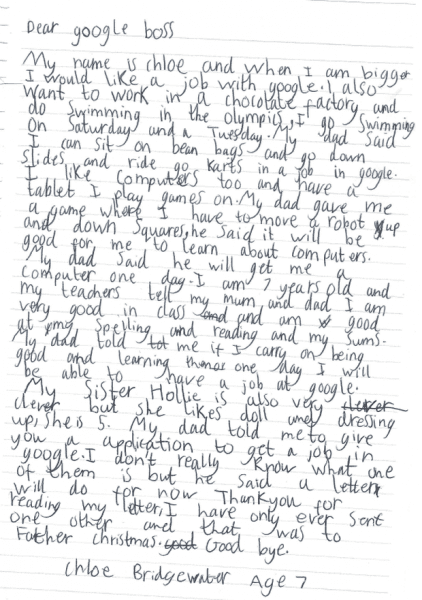 Dear google boss
My name is chloe and when I am bigger
I would like a job with google. I also
want to work in a chocolate factory and
do swimming in the olympics, I go swimming
on Saturday and a Tuesday. My dad said
I can sit on bean bags and go down
slides and ride go karts in a job in google.
I like computers too and have a
tablet I play games on. My dad gave me
a game where I have to move a robot up
and down squares, he said it will be
good for me to learn about computers.
My dad said he will get me a
computer one day. I am 7 years old and
my teachers tell my mum and dad I am
very good in class and am good
at spelling and reading and my sums.
My dad told me if I carry on being
good and learning one day I will
be able to have a job at google.
My sister Hollie is also very
clever but she likes doll and dressing
up, she is 5. My dad told me to give
you a application to get a job in
google. I don't really know what one
of them is but he said a letter
will do for now Thankyou for
reading my letter, I have only ever sent
one other and that was to
Father christmas. Good bye.
Chloe Bridgewater Age 7